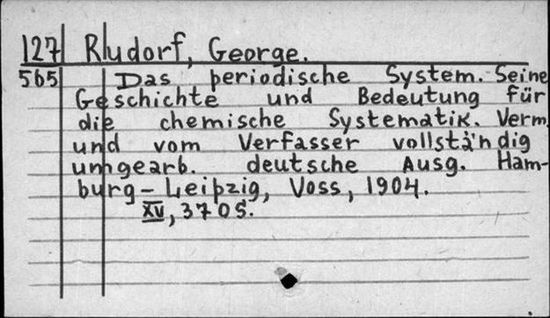 127 Rudorf, George.
565 Das periodische System. Seine
Geschichte und Bedeutung für
die chemische Systematik. Verm.
und vom Verfasser vollständig
umgearb. deutsche Ausg. Ham-
burg - Leipzig, Voss, 1904.
XV, 370 S.